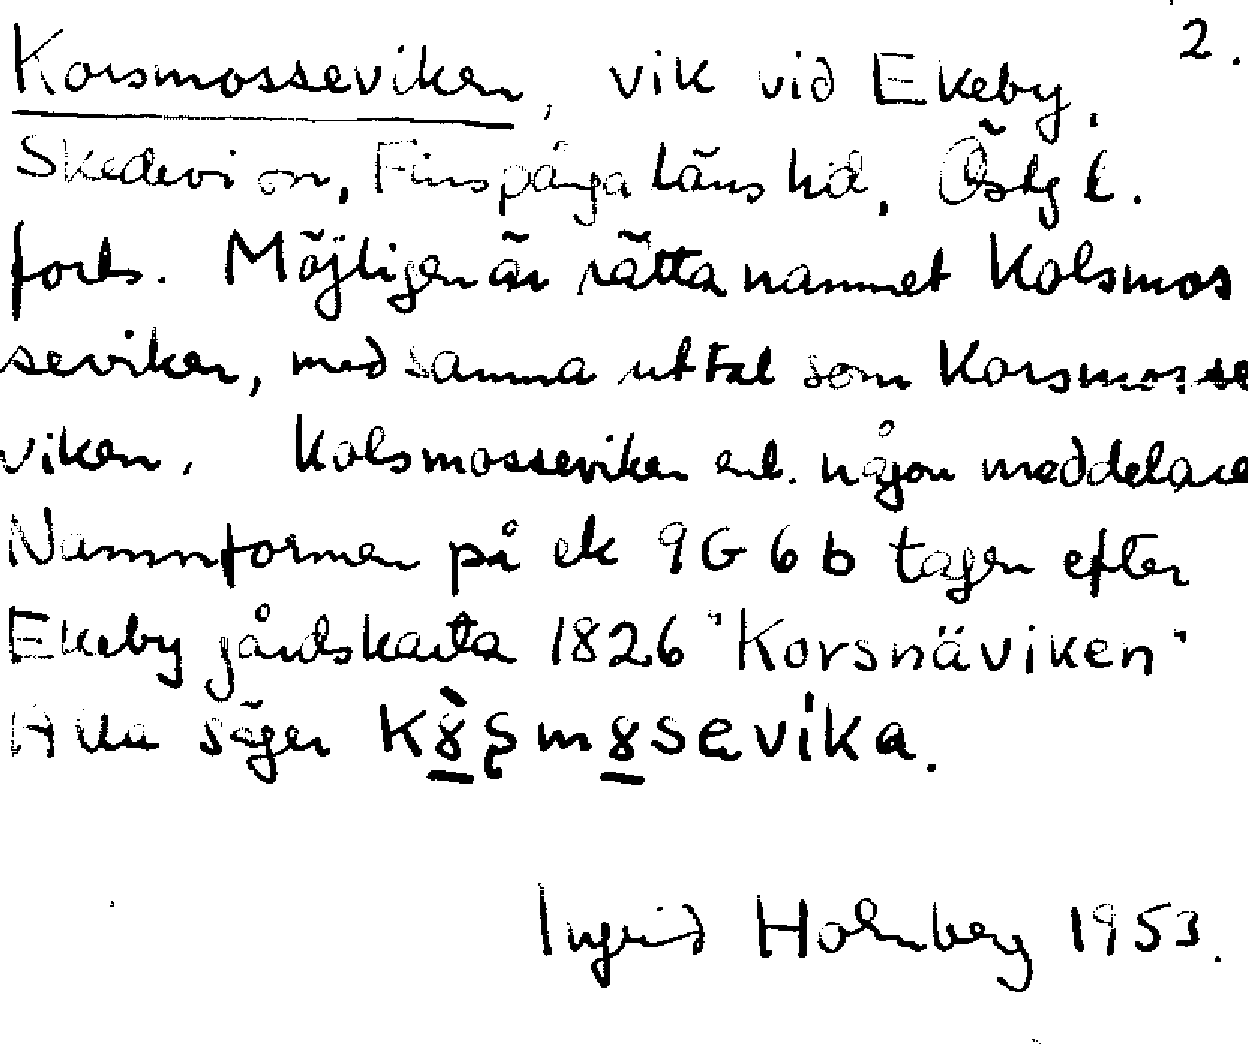 2.
Korsmosseviken, vik vid Ekeby,
Skedevi sn, Finspånga läns hd, Östg l.
forts. Möjligen är rätta namnet Kolsmos
seviken, med samma uttal som Korsmosse
viken. Kolsmosseviken enl. någon meddelare
Namnformen på ek 9G6b tagen efter
Ekeby gårdskarta 1826 "Korsnäviken"
Alla säger
Ingrid Holmberg 1953.